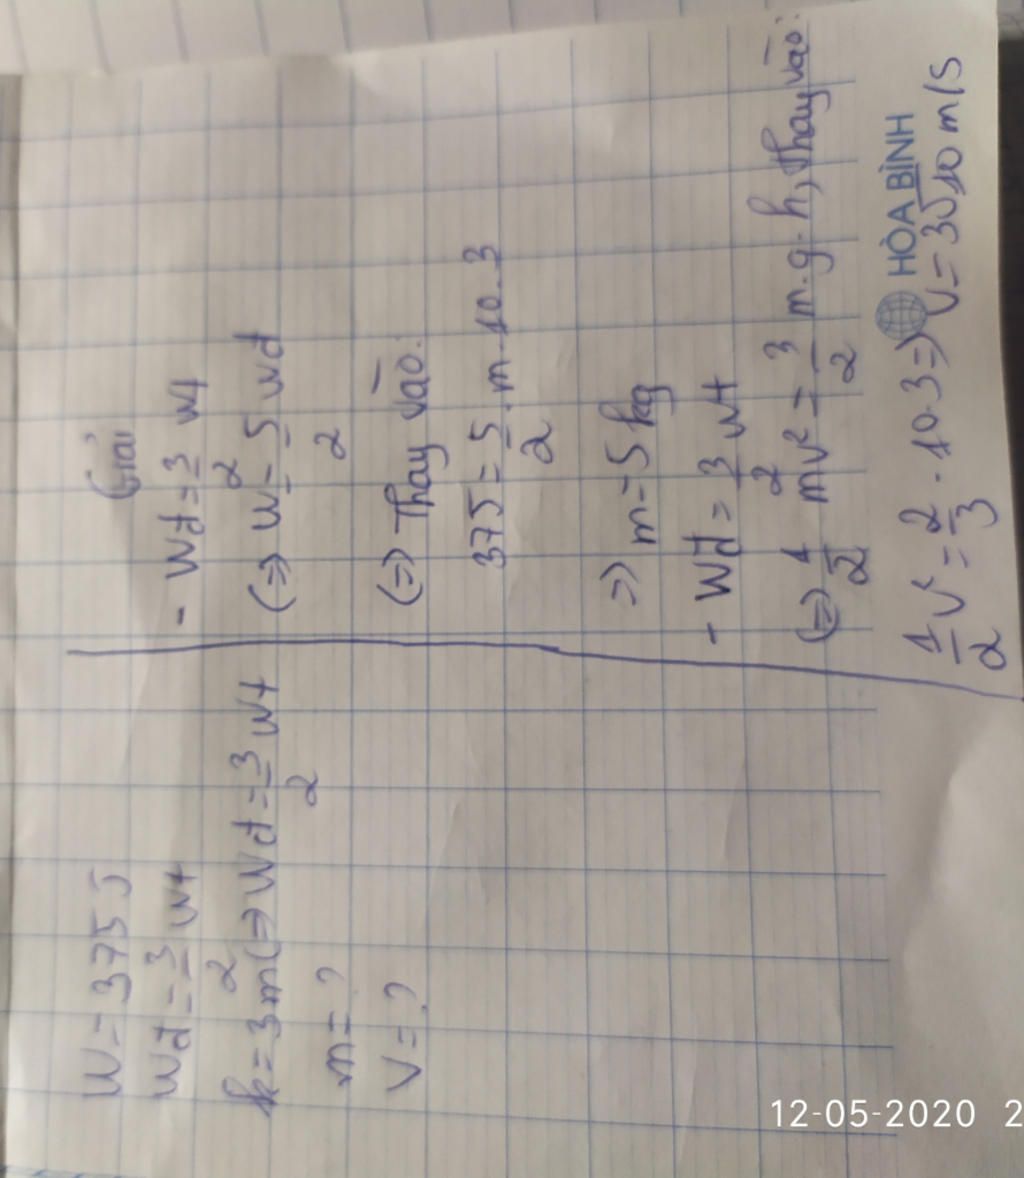 W = 375 J
Wđ = 3/2 Wt
h = 3m (=> Wđ = 3/2 Wt
m = ?
V = ?
Giải
- Wđ = 3/2 Wt
(=> W = 5/2 Wđ
(=> Thay vào:
375 = 5/2 . m . 10 . 3
=> m = 5 kg
- Wđ = 3/2 Wt
(=> 1/2 mv² = 3/2 m.g.h, thay vào:
1/2 v² = 2/3 . 10.3 => v = 3√10 m/s
HÒA BÌNH
12-05-2020 2